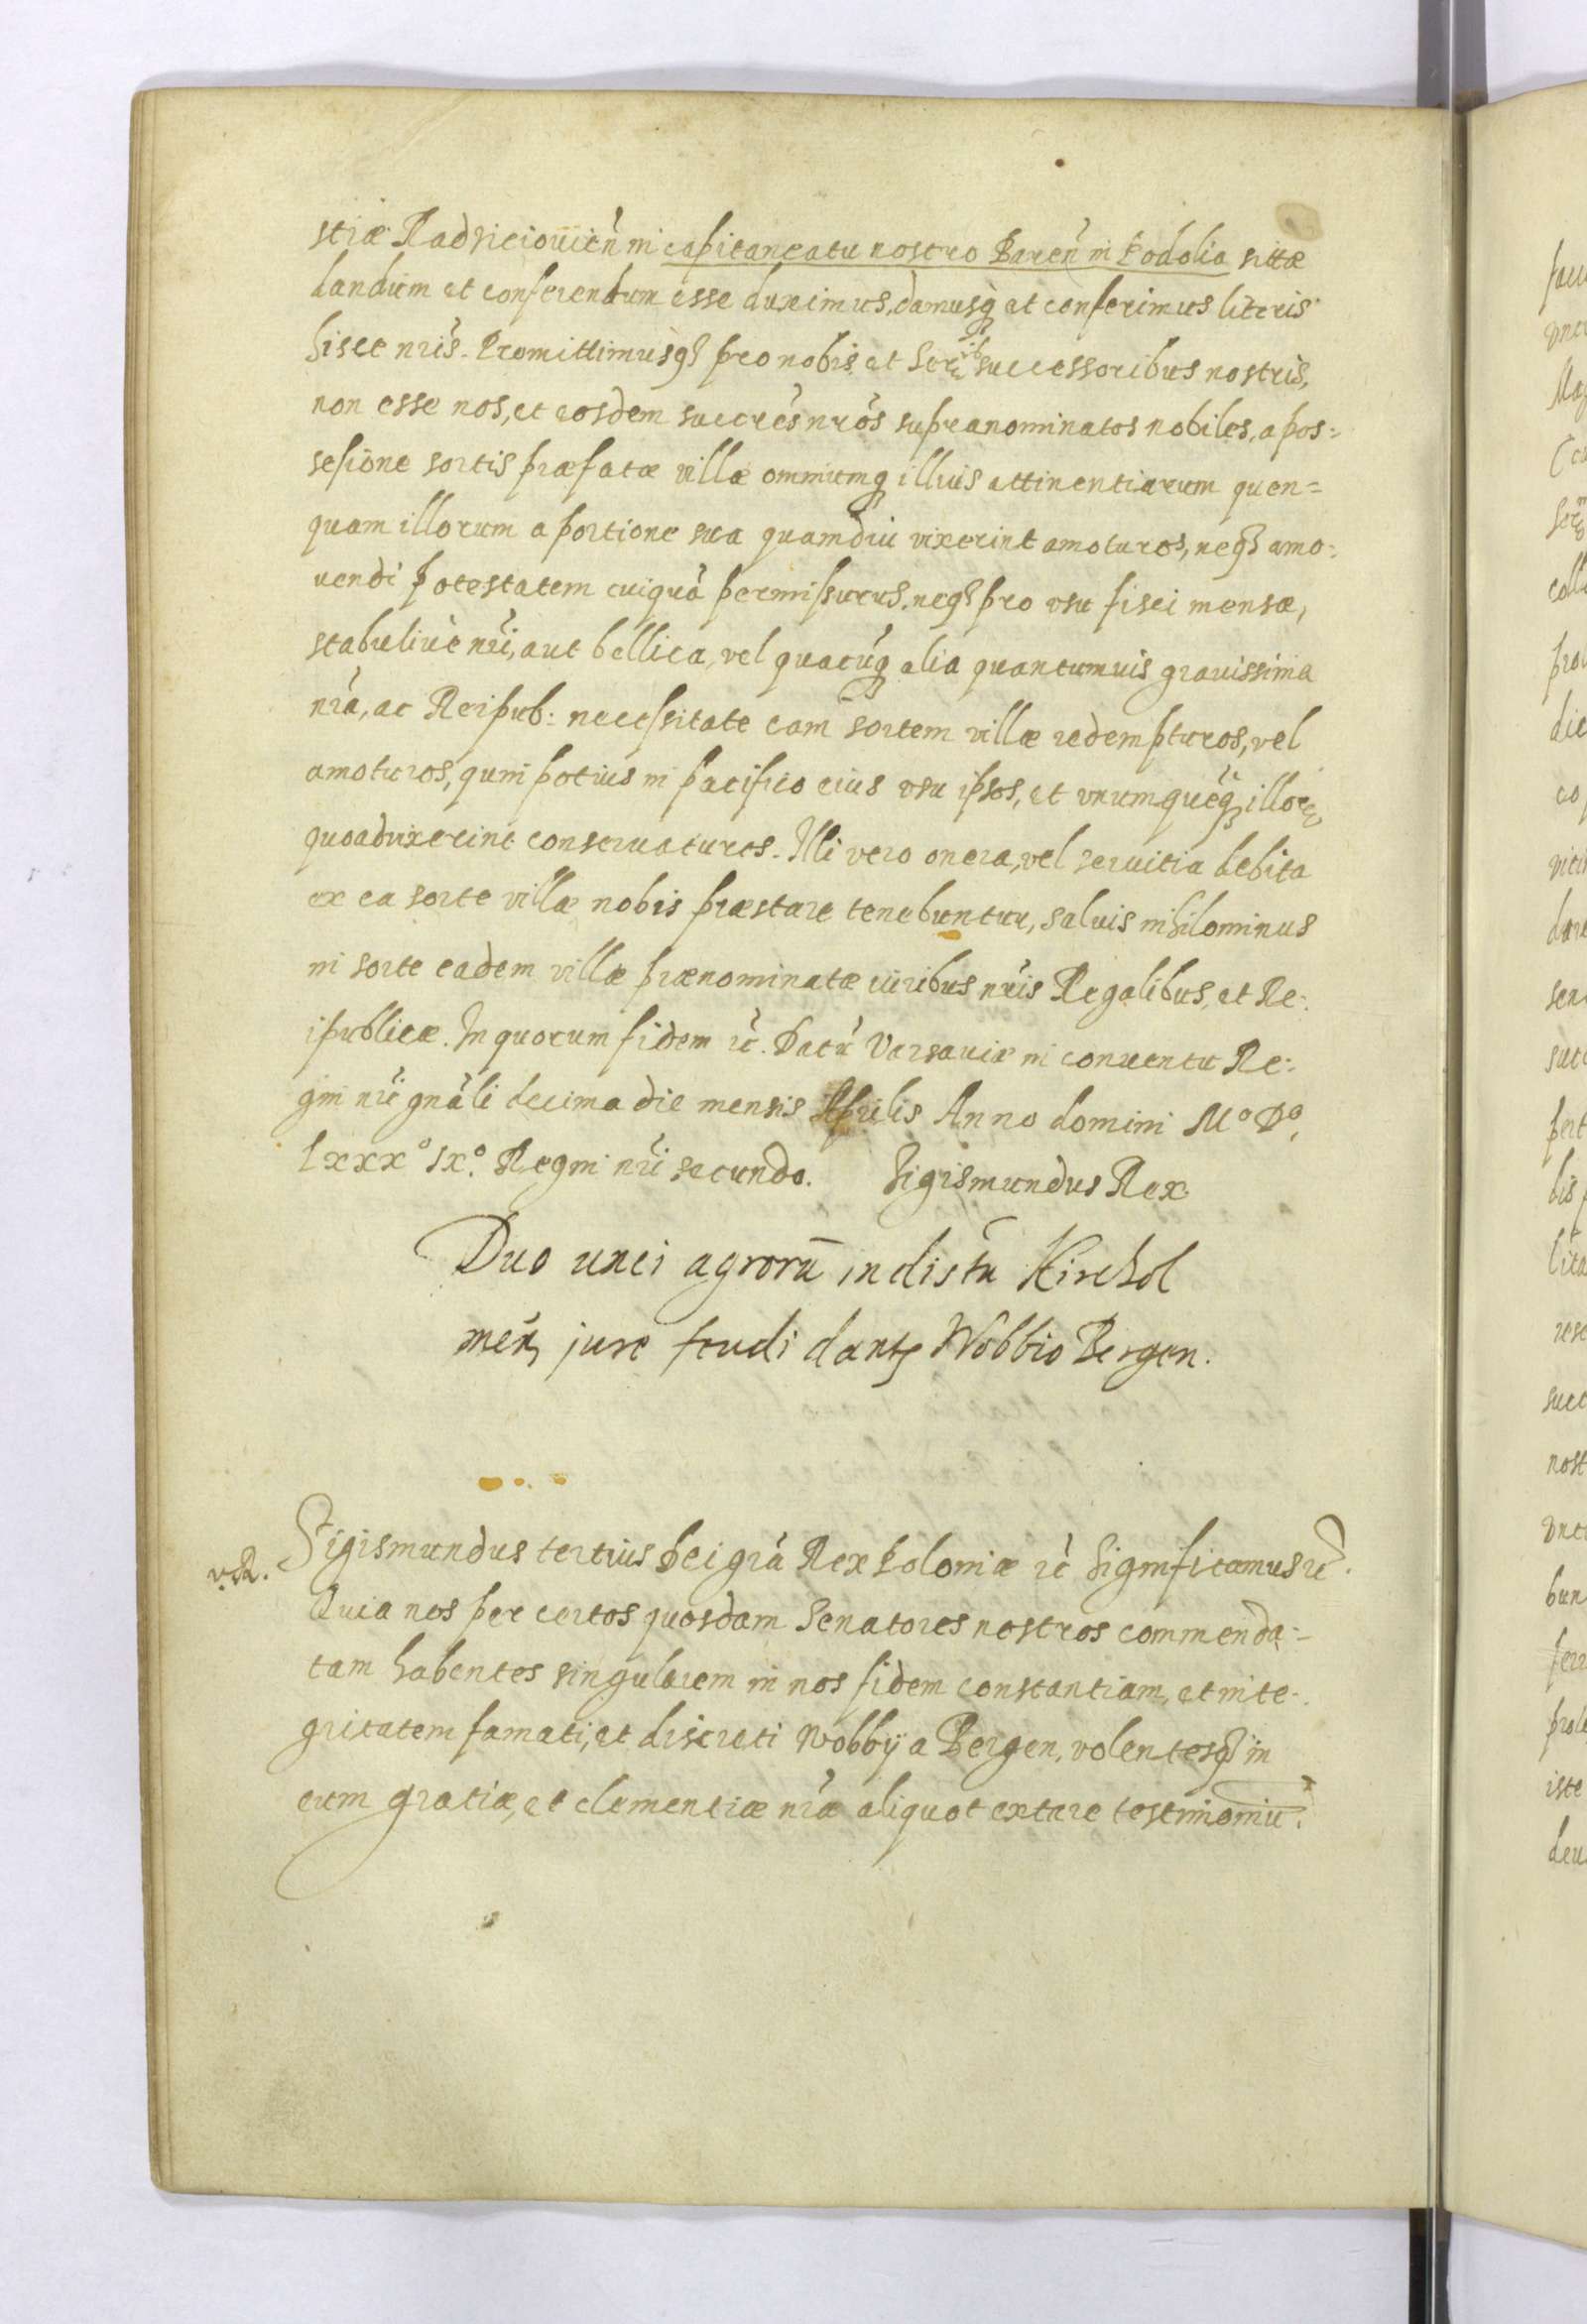 stiæ Radziciouień in capitaneatu nostro Bareń in Podolia sittæ
dandum et conferendum esse duximus, damusq et conferimus literis
hisce nrìs. Promittimusq pro nobis et Ser successoribus nostris,
non esse nos, et eosdem succrès nròs supranominatos nobiles, a pos=
sesione sortis præfatæ villæ omniumq illius attinentiarum quen=
quam illorum a portione sua quamdiu vixerint amoturos, neq amo=
uendi potestatem cuiquà permissurus, neq pro usu fisci mensæ,
stabuliuè nrì, aut bellica, vel quacùq alia quantumuis gravissima
nrà, ac Reipub: necessitate eam sortem villæ redempturos, vel
amoturos, quin potius in pacifico eius usu ipsos, et unumquèq illor
quoad vixerint conseruaturos. Illi vero onera, vel seruitia debita
ex ea sorte villæ nobis præstare tenebuntur, saluis nihilominus
in sorte eadem villæ prænominatæ iuribus nrìs Regalibus, et Re=
ipublicæ. In quorum fidem rc. Datù Varsaviæ in conuentu Re=
gni nrì gnàli decima die mensis Aprilis Anno domini Mº Dº,
lxxxº ixº. Regni nrì secundo. Sigismundus Rex.
Duo unci agrorū in distū Kirchol
meń, jure feudi dant Wobbio Bergen.
Sigismundus tertius Dei grà Rex Poloniæ rc Significamus rc.
Quia nos per certos quosdam Senatores nostros commenda=
tam habentes singularem in nos fidem constantiam, et inte=
gritatem famati, et discreti Wobbij a Bergen, volentesq in
eum gratiæ, et clementiæ nræ aliquot extare testimoniū.